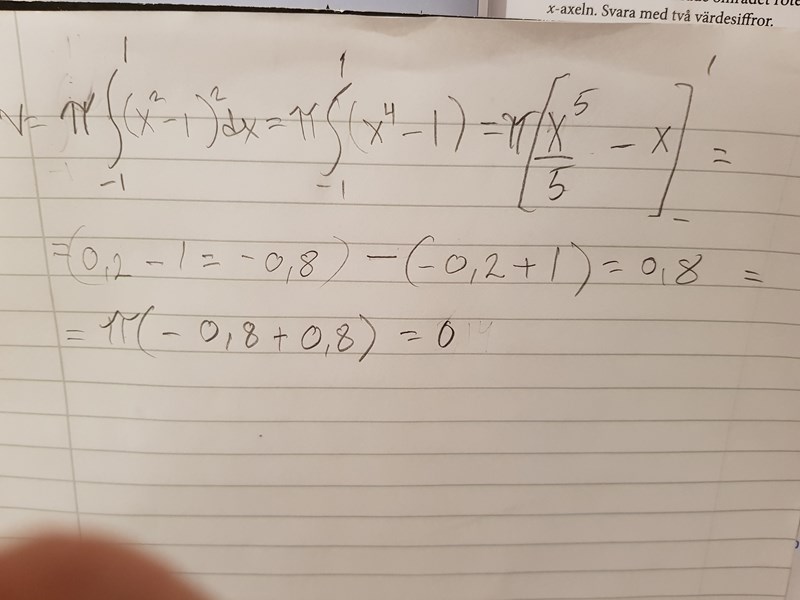 x-axeln. Svara med två värdesiffror.
V = π ∫₋₁¹ (x² - 1)² dx = π ∫₋₁¹ (x⁴ - 1) = π [x⁵/5 - x]₋¹ =
= (0,2 - 1 = -0,8) - (-0,2 + 1) = 0,8 =
= π(-0,8 + 0,8) = 0